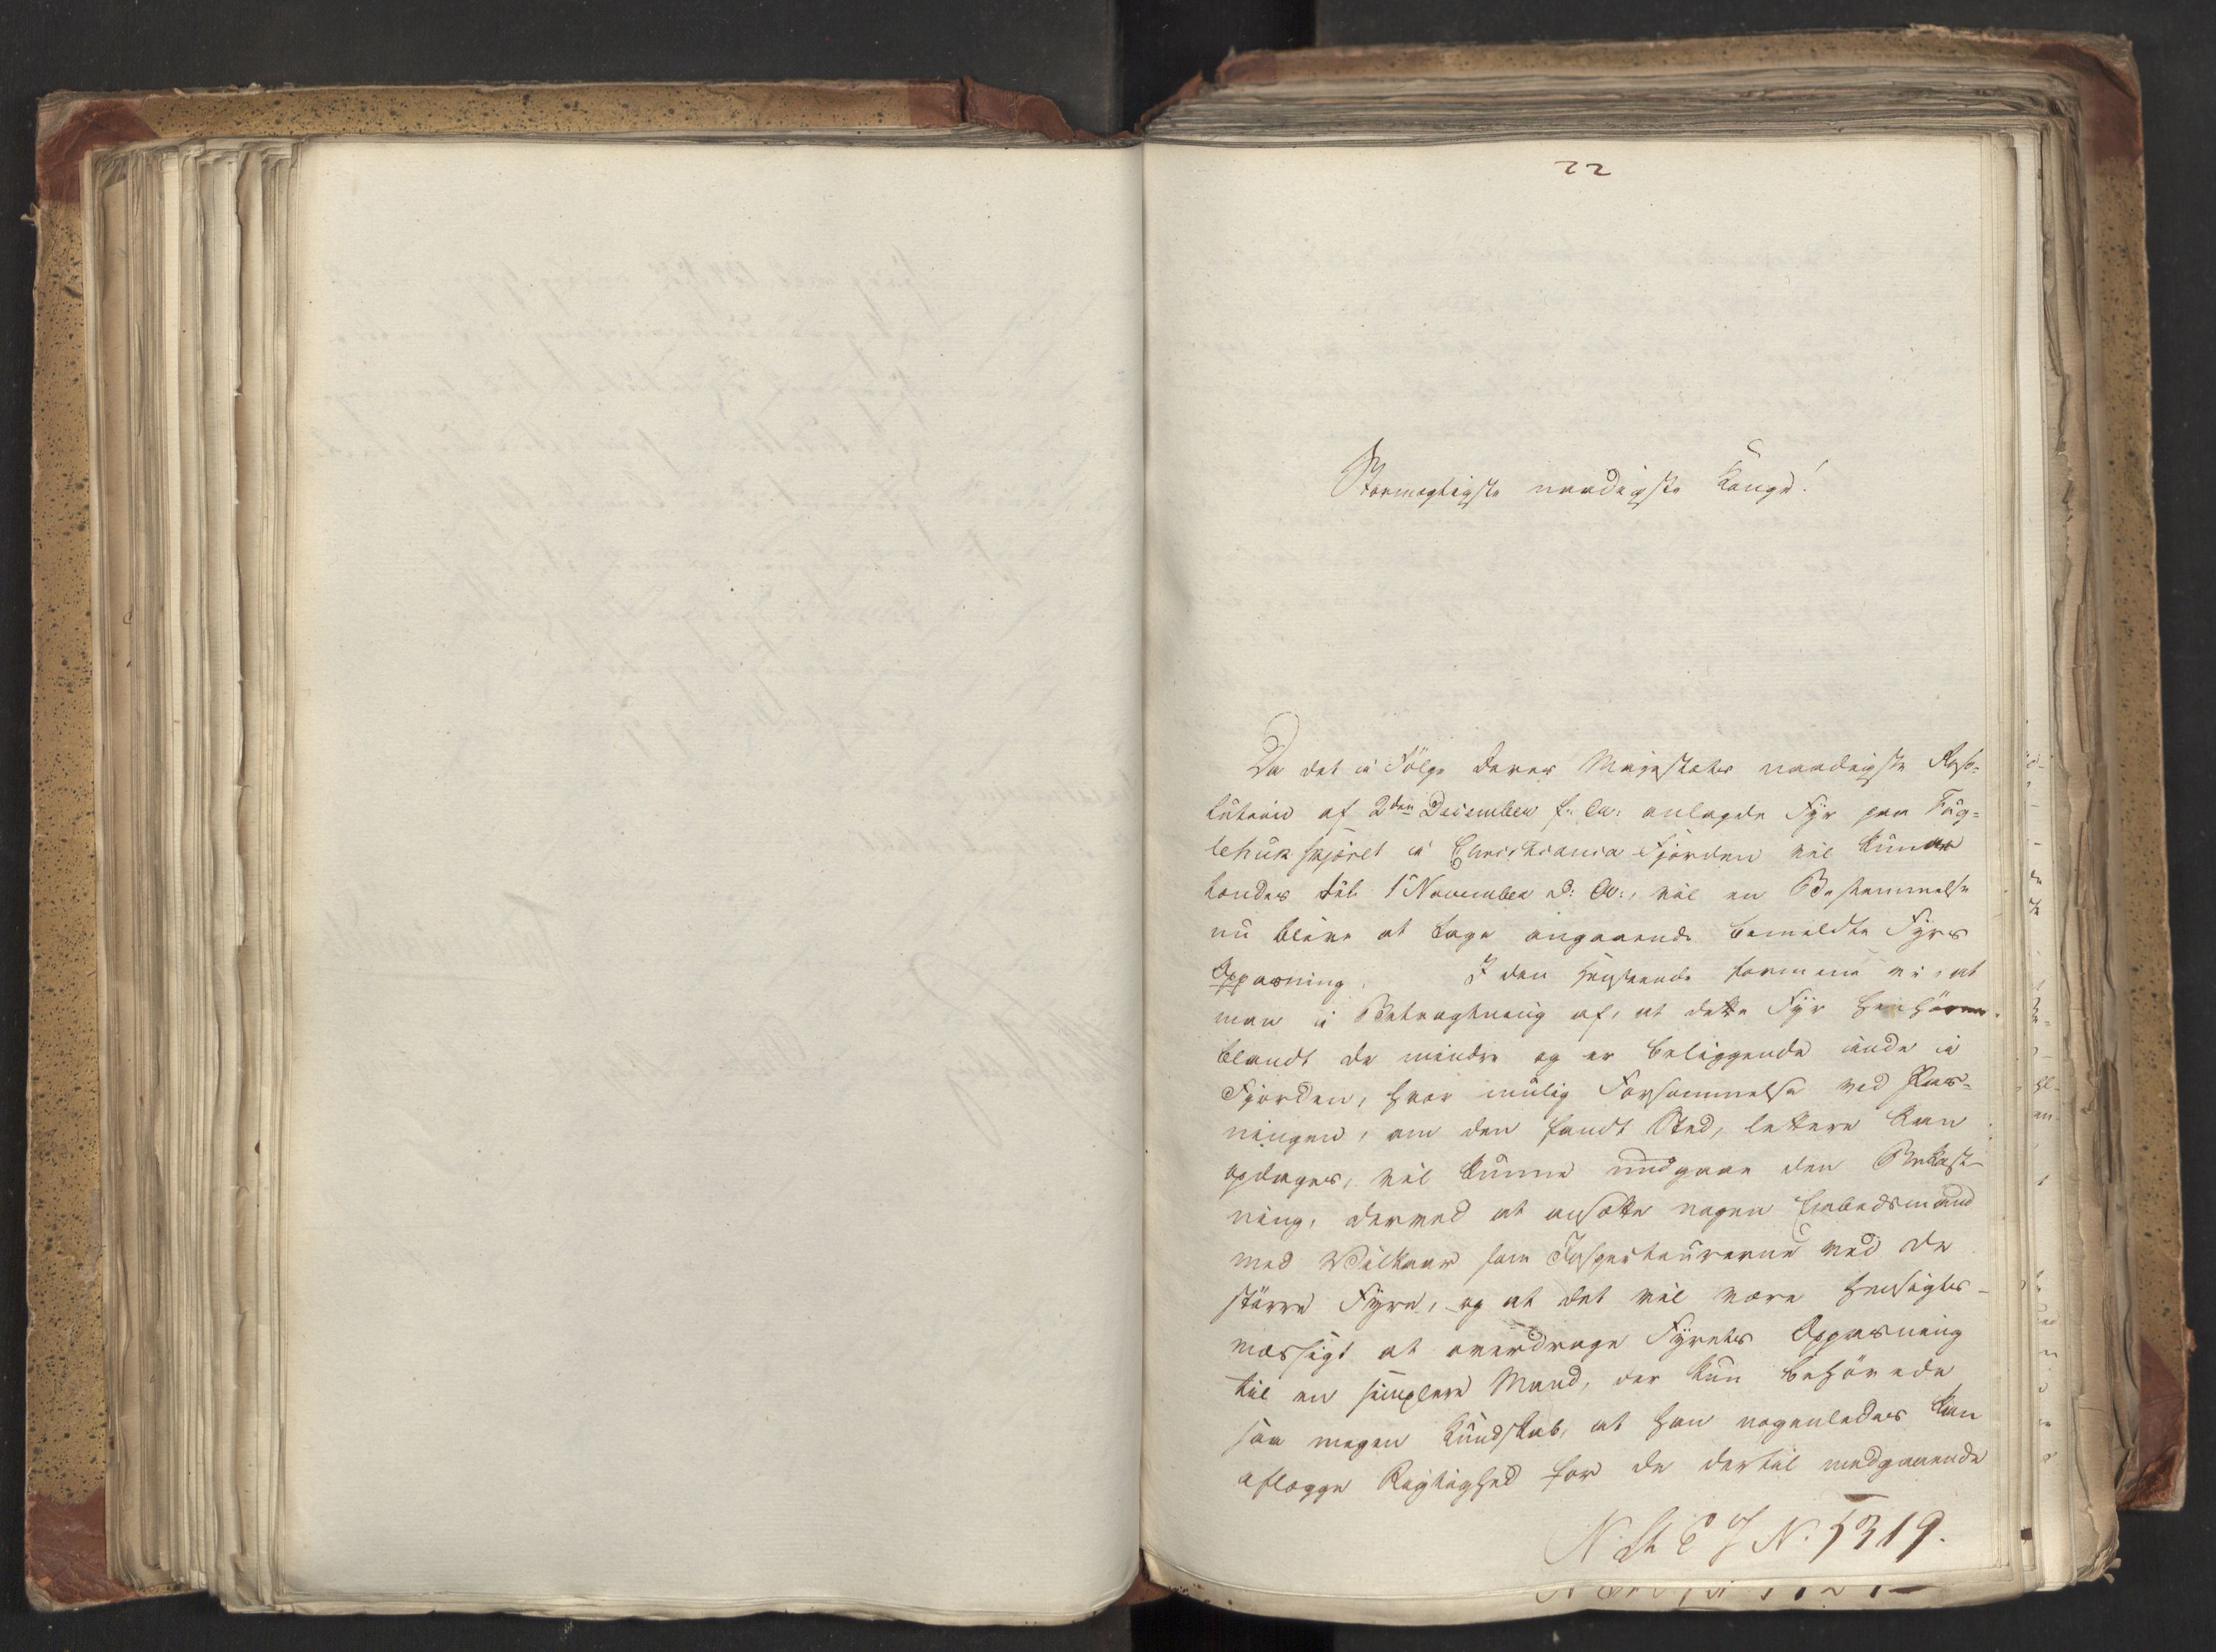 22
Stormægtigste naadigste Konge!
Da det i Følge Deres Majestæts naadigste Reso-
lution af 2den December f: A: anlagde Fyr paa Fug-
lehuk skjæret i Christiania-Fjorden vil kunne
tændes til 1 November d: A:, vil en Bestemmelse
nu blive at tage angaaende bemeldte Fyrs
Opparning. I den Henseende formene vi, at
man i Betragtning af, at dette Fyr henhører
blandt de mindre og er beliggende inde i
Fjorden, hvor mulig Forsømmelse ved Pas-
ningen, om den fandt Sted, lettere kan
opdages, vil kunne undgaae den Bekost-
ning, derved at ansætte nogen Embedsmand
med Vilkaar som Inspecteurerne ved de
større Fyre, og at det vil være hensigts-
mæssigt at overdrage Fyrets Oppasning
til en simplere Mand, der kun behøvede
saa megen Kundskab, at han nogenledes kan
aflægge Rigtighed for de dertil medgaaende
N. St. E J N. 1319.